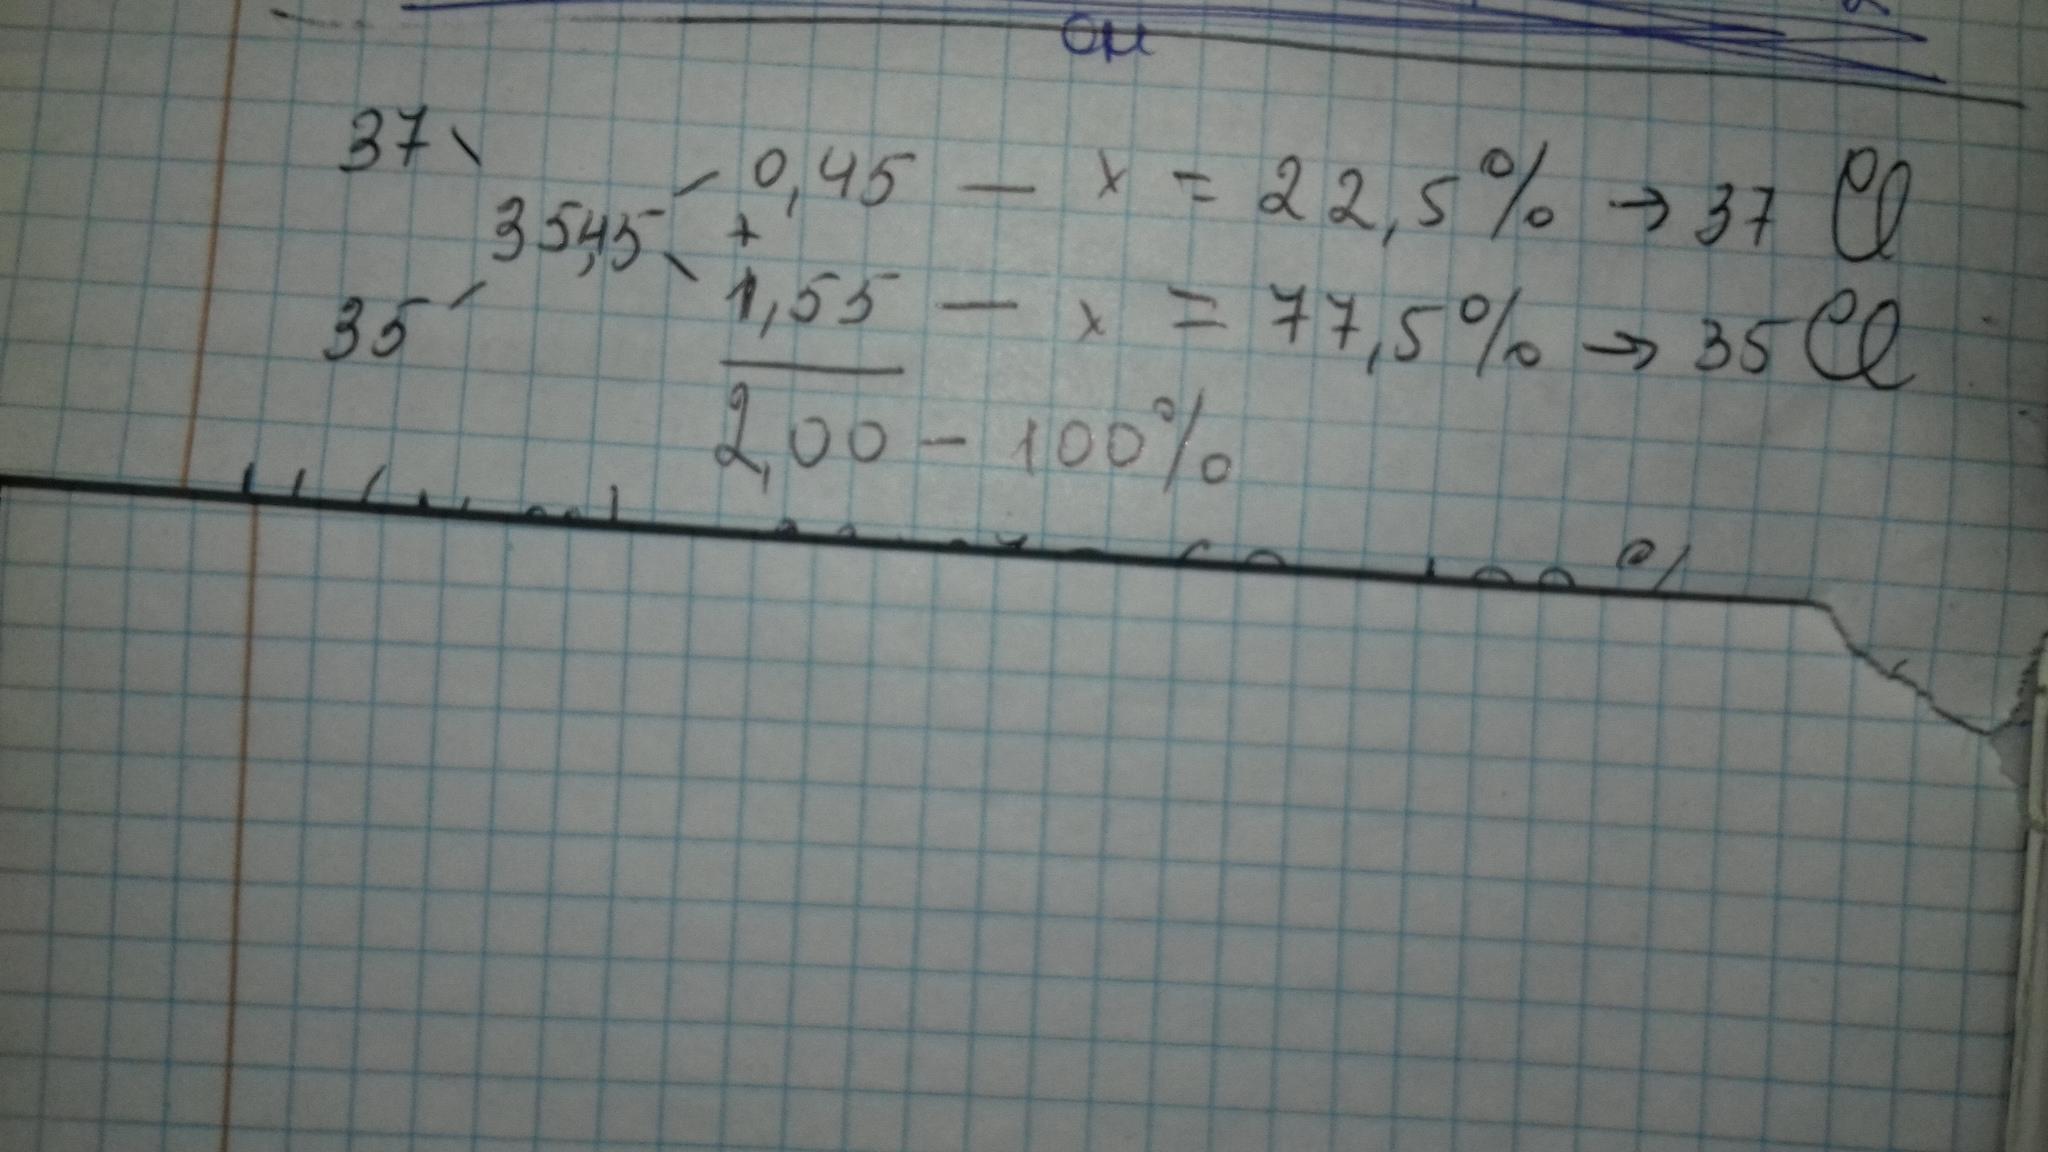 ОН
37
0,45 — x = 22,5% → 37 Cl
35,45 +
35
1,55 — x = 77,5% → 35 Cl
2,00 — 100%